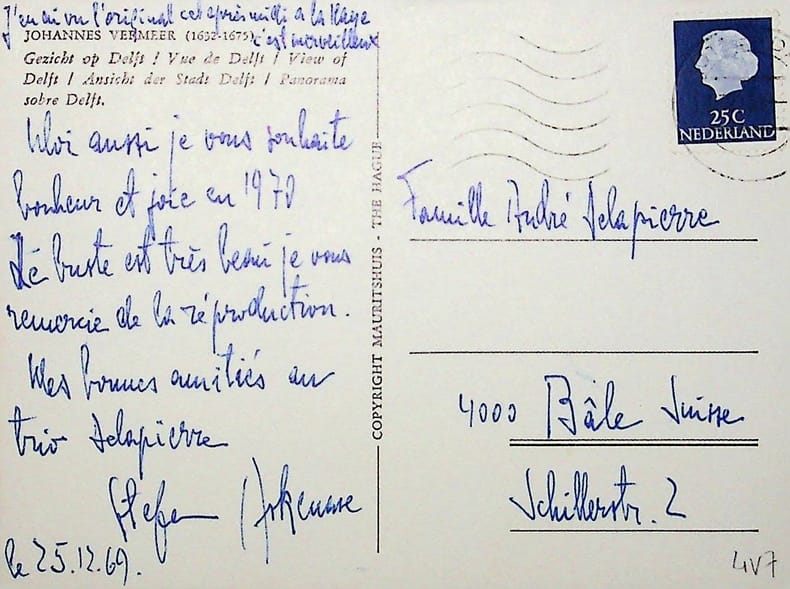 J'en ai vu l'original cet après midi a la Haye
c'est merveilleux
JOHANNES VERMEER (1632-1675)
Gezicht op Delft / Vue de Delft / View of
Delft / Ansicht der Stadt Delft / Panorama
sobre Delft.
Moi aussi je vous souhaite
bonheur et joie en 1970
Le buste est très beau je vous
remercie de la réproduction.
Mes bonnes amitiés au
trio Delapierre
Stefan
le 25.12.69.
COPYRIGHT MAURITSHUIS - THE HAGUE
25 C
NEDERLAND
Famille André Delapierre
4000 Bâle Suisse
Schillerstr. 2
4V7